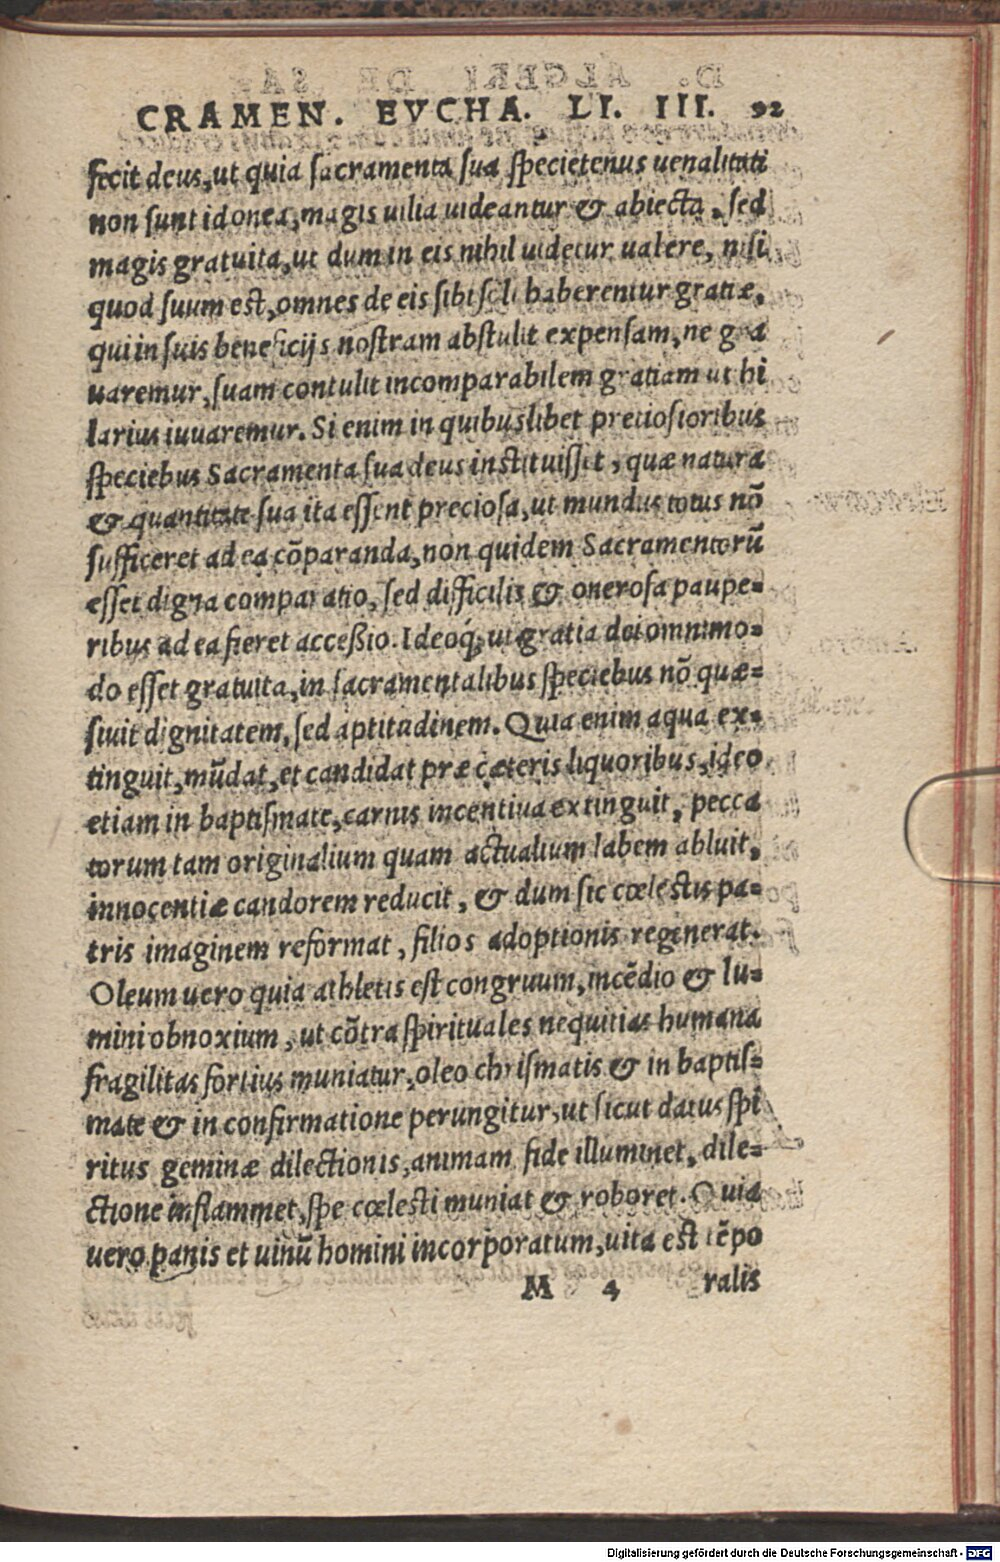 CRAMEN. EVCHA. LI. III. 92
fecit deus, ut quia sacramenta sua specietenus uenalitati
non sunt idonea, magis uilia uideantur & abiecta, sed
magis gratuita, ut dum in eis nihil uidetur ualere, nisi
quod suum est, omnes de eis sibi soli haberentur gratiæ,
qui in suis beneficijs nostram abstulit expensam, ne gra
uaremur, suam contulit incomparabilem gratiam ut hi
larius iuuaremur. Si enim in quibuslibet preciosioribus
speciebus Sacramenta sua deus instituisset, quæ natura
& quantitate sua ita essent preciosa, ut mundus totus nõ
sufficeret ad ea cõparanda, non quidem Sacramentorũ
esset digna comparatio, sed difficilis & onerosa paupe=
ribus ad ea fieret acceßio. Ideoq́;, ut gratia dei omnimo=
do esset gratuita, in sacramentalibus speciebus nõ quæ=
siuit dignitatem, sed aptitudinem. Quia enim aqua ex=
tinguit, mũdat, et candidat præ cæteris liquoribus, ideo
etiam in baptismate, carnis incentiua extinguit, pecca
torum tam originalium quam actualium labem abluit,
innocentiæ candorem reducit, & dum sic cœlestis pa=
tris imaginem reformat, filios adoptionis regenerat.
Oleum uero quia athletis est congruum, incẽdio & lu=
mini obnoxium, ut cõtra spirituales nequitias humana
fragilitas fortius muniatur, oleo chrismatis & in baptis=
mate & in confirmatione perungitur, ut sicut datus spi
ritus geminæ dilectionis, animam fide illuminet, dile=
ctione inflammet, spe cœlesti muniat & roboret. Quia
uero panis et uinũ homini incorporatum, uita est tẽpo
M 4 ralis
Digitalisierung gefördert durch die Deutsche Forschungsgemeinschaft - DFG